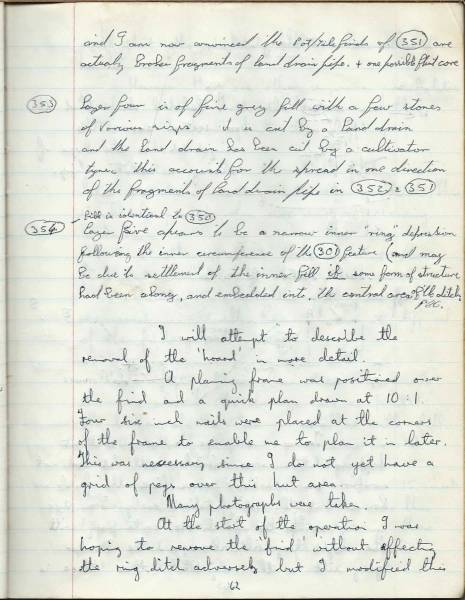 and I am now convinced the Pot/tile finds of 351 are
actually broken fragments of land drain pipe. + one possible flint core
353 Layer four is of fine grey fill with a few stones
of various sizes it is cut by a land drain
and the land drain has been cut by a cultivator
tyne. this accounts for the spread in one direction
of the fragments of land drain pipe in 352 & 351
fill is identical to 350
354 Layer five apears to be a narrow inner "ring" depression
following the inner circumference of the 301 feature (and may
be due to settlement of the inner fill if some form of structure
had been along, and embedded into, the central area of the ditch
I will attempt to describe the
removal of the 'hoard' in more detail.
A planing frame was positioned over
the find and a quick plan drawn at 10:1.
Four six inch nails were placed at the corners
of the frame to enable me to plan it in later.
This was necessary since I do not yet have a
grid of pegs over this hut area.
Many photographs were taken.
At the start of the operation I was
hoping to remove the 'find' without affecting
the ring ditch adversely but I modified this
62